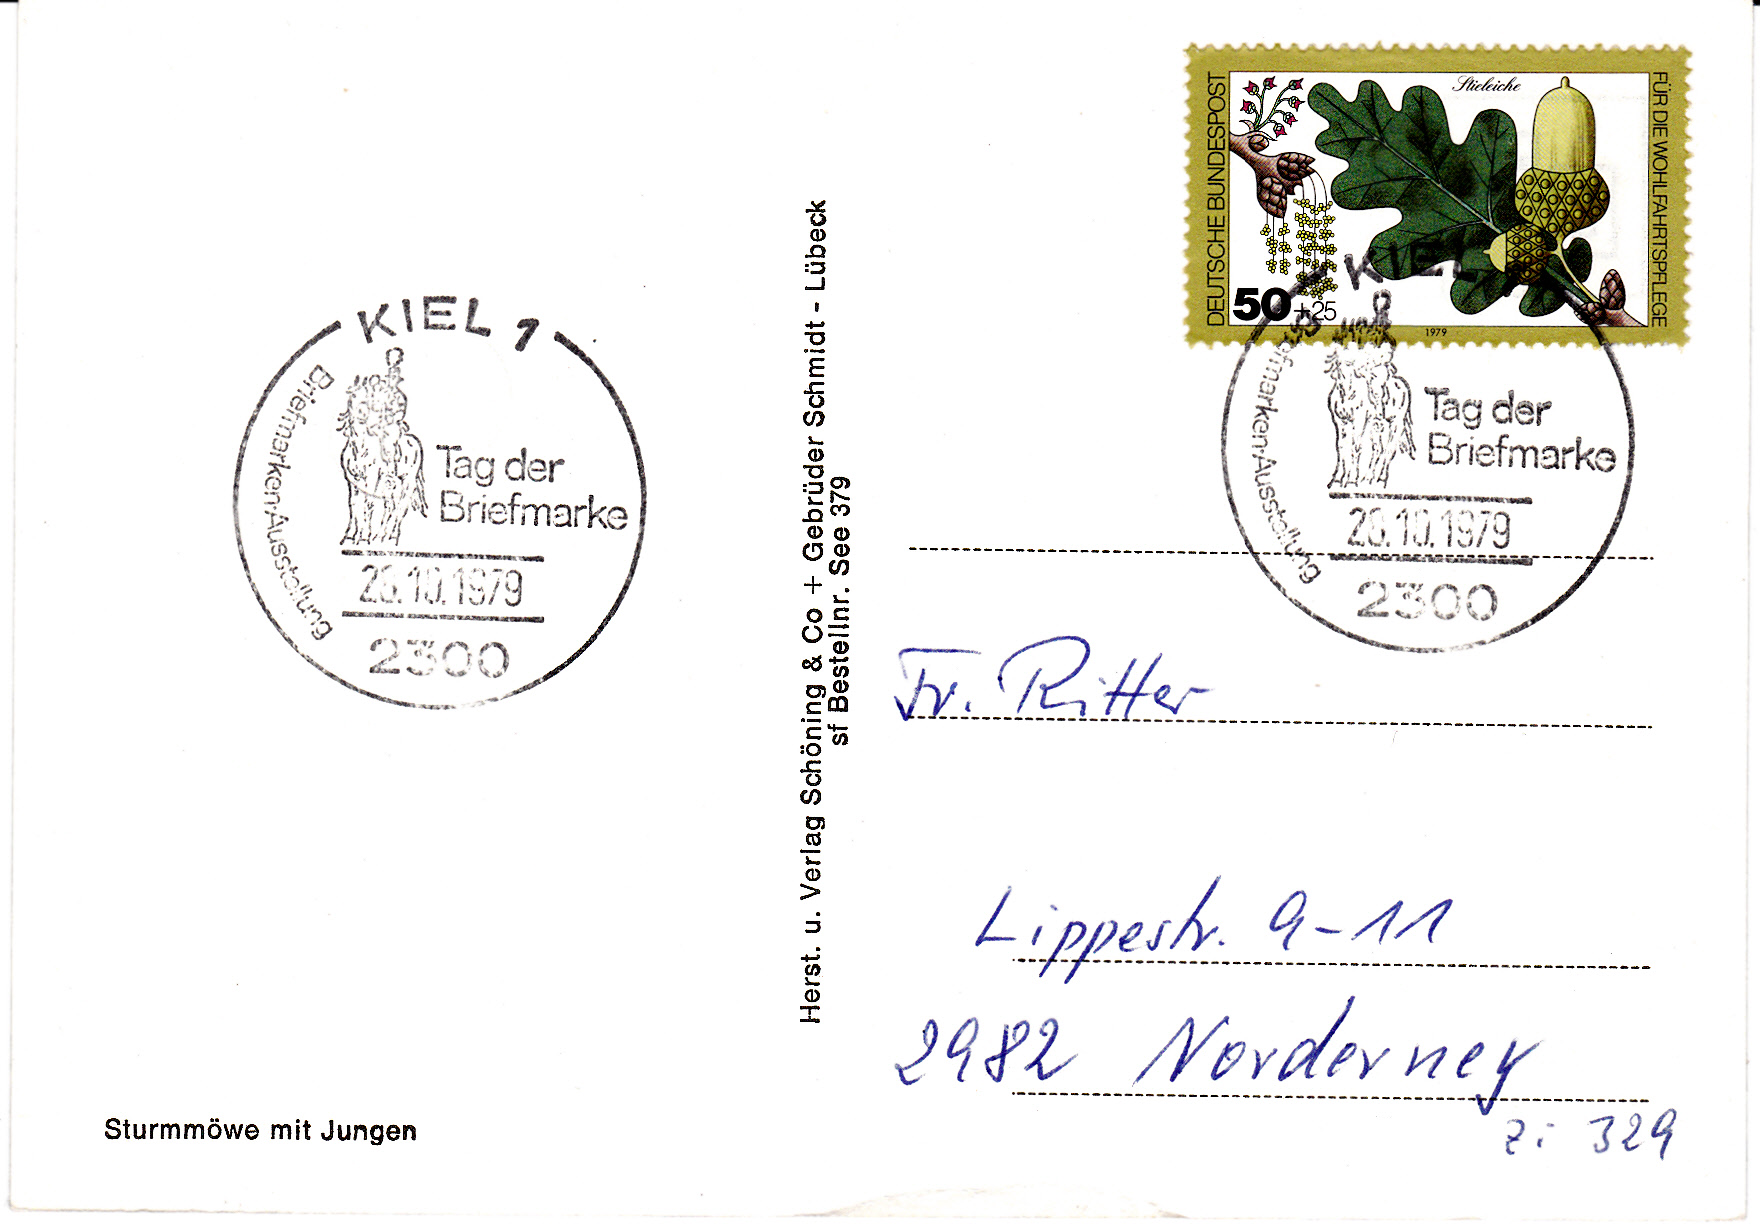 KIEL 1
Briefmarken-Ausstellung
Tag der
Briefmarke
26.10.1979
2300
Sturmmöwe mit Jungen
Herst. u. Verlag Schöning & Co + Gebrüder Schmidt - Lübeck
sf Bestellnr. See 379
DEUTSCHE BUNDESPOST
Stieleiche
FÜR DIE WOHLFAHRTSPFLEGE
50+25
1979
KIEL
Briefmarken-Ausstellung
Tag der
Briefmarke
26.10.1979
2300
Fr. Ritter
Lippestr. 9-11
2982 Norderney
Zi 329